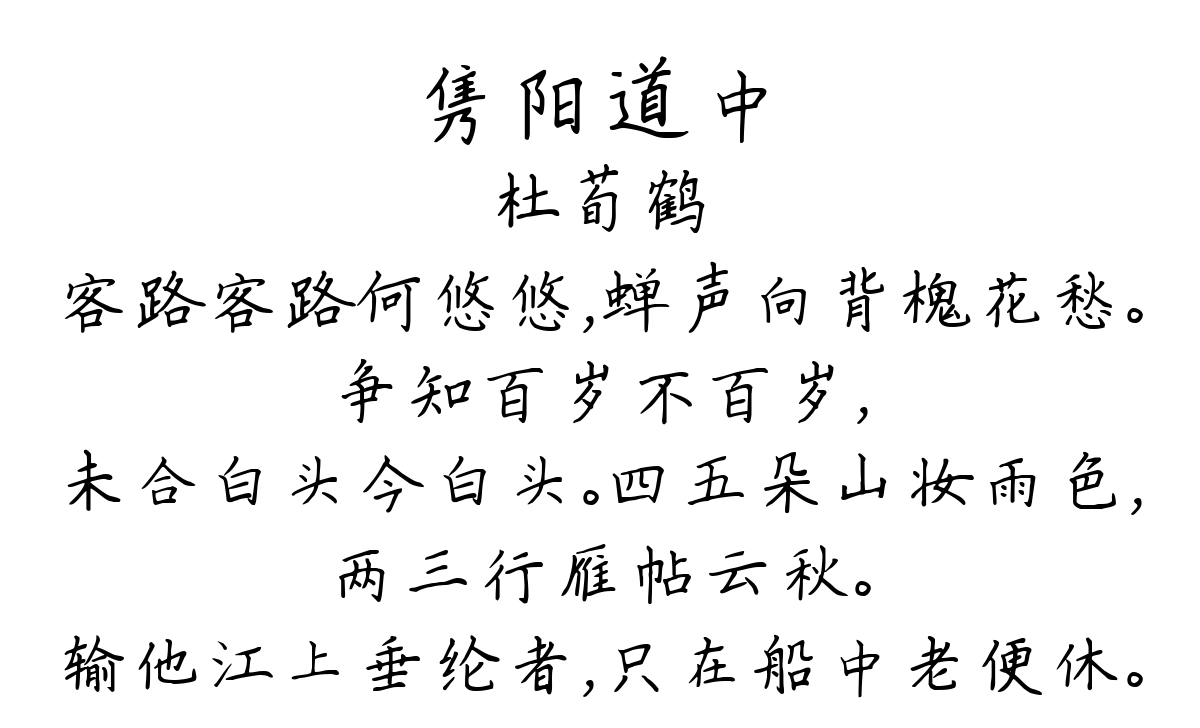 隽阳道中
杜荀鹤
客路客路何悠悠,蝉声向背槐花愁。
争知百岁不百岁,
未合白头今白头。四五朵山妆雨色,
两三行雁帖云秋。
输他江上垂纶者,只在船中老便休。